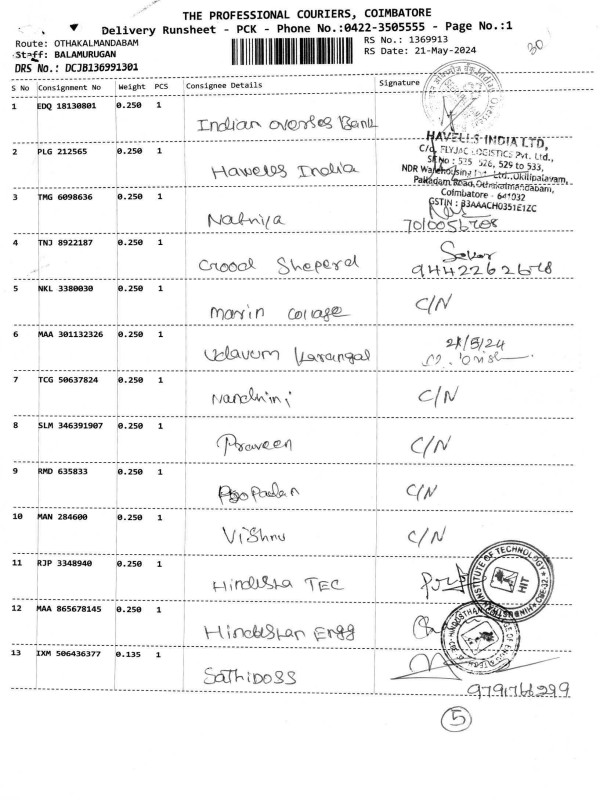 THE PROFESSIONAL COURIERS, COIMBATORE
Delivery Runsheet - PCK - Phone No.:0422-3505555 - Page No.:1
Route: OTHAKALMANDABAM
RS No.: 1369913
30
Staff: BALAMURUGAN
RS Date: 21-May-2024
DRS No.: DCJB136991301
S No Consignment No Weight PCS Consignee Details Signature
1 EDQ 18130801 0.250 1
Indian overses Bank
2 PLG 212565 0.250 1
Havells India
HAVELLS INDIA LTD,
C/o. FLYJAC LOGISTICS Pvt. Ltd.,
SF.No : 535, 528, 529 to 533,
NDR Warehousing Pvt. Ltd., Okilipalayam,
Palladam Road, Othakalmandabam,
Coimbatore - 641032
GSTIN : 33AAACH0351E1ZC
3 TMG 6098636 0.250 1
4 TNJ 8922187 0.250 1
Good Sheperd
Sekar
5 NKL 3380030 0.250 1
marin collage C/N
6 MAA 301132326 0.250 1
Udavum Karangal
21/5/24
7 TCG 50637824 0.250 1
Nandhini C/N
8 SLM 346391907 0.250 1
Praveen C/N
9 RMD 635833 0.250 1
C/N
10 MAN 284600 0.250 1
Vishnu C/N
11 RJP 3348940 0.250 1
TEC
INSTITUTE OF TECHNOLOGY
HIT
12 MAA 865678145 0.250 1
Hindusthan Engg
13 IXM 506436377 0.135 1
SathiDoss
9791766299
5